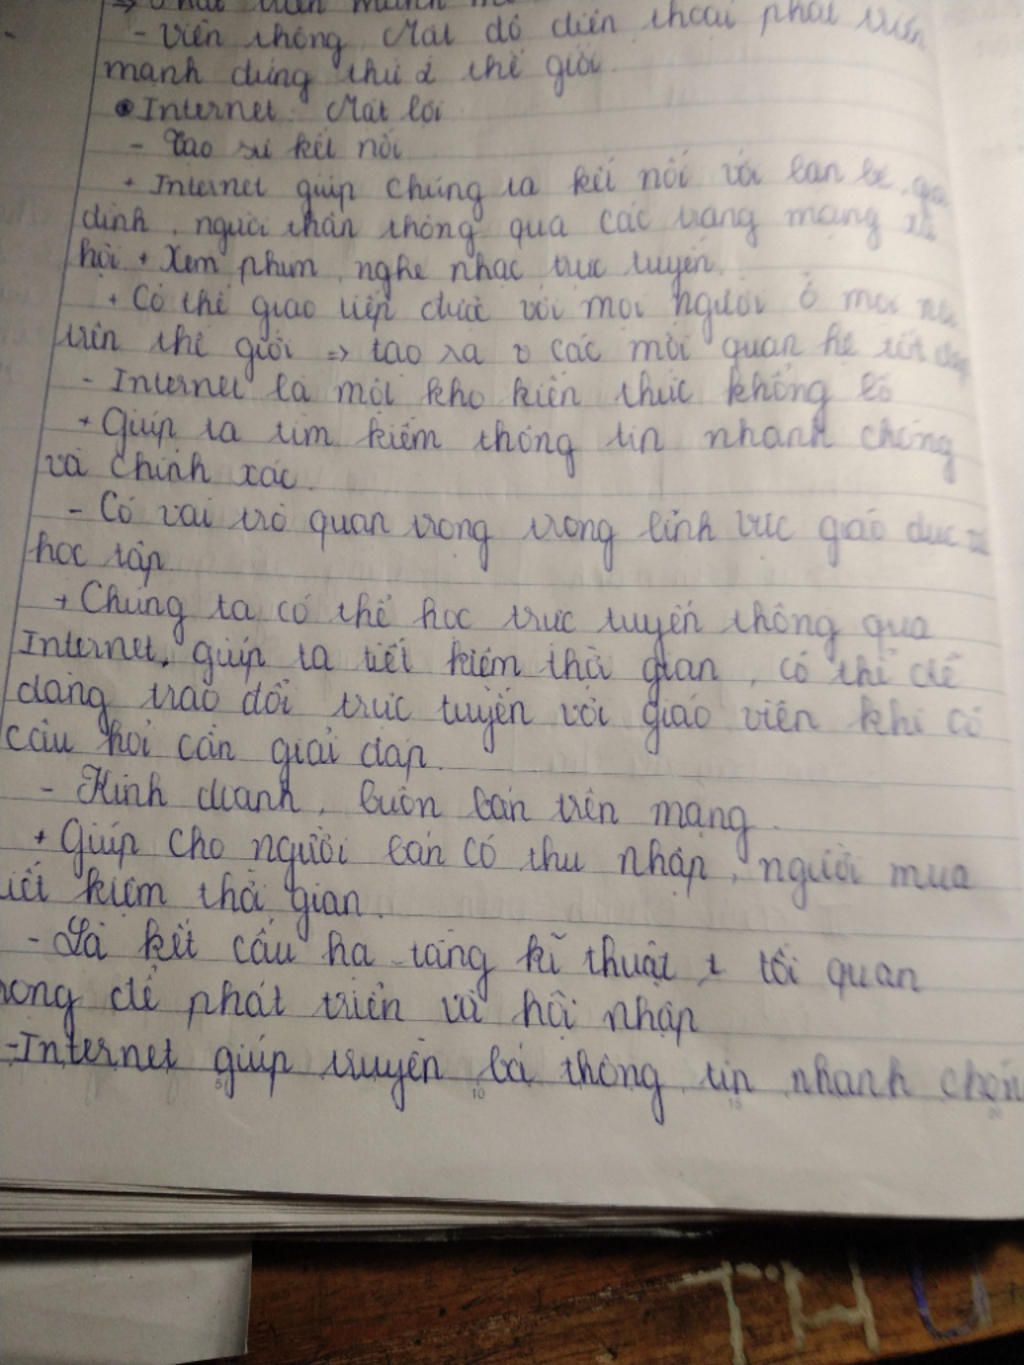 => Phát triển mạnh
- Viễn thông. Mật độ điện thoại phát triển
mạnh đứng thứ 2 thế giới.
• Internet: Mặt lợi
- Tạo sự kết nối
+ Internet giúp chúng ta kết nối với bạn bè, gia
đình, người thân thông qua các trang mạng xã
hội + Xem phim, nghe nhạc trực tuyến.
+ Có thể giao tiếp được với mọi người ở mọi nơi
trên thế giới => tạo ra các mối quan hệ tốt đẹp
- Internet là một kho kiến thức khổng lồ
+ Giúp ta tìm kiếm thông tin nhanh chóng
và chính xác.
- Có vai trò quan trọng trong lĩnh vực giáo dục và
học tập
+ Chúng ta có thể học trực tuyến thông qua
Internet, giúp ta tiết kiệm thời gian, có thể dễ
dàng trao đổi trực tuyến với giáo viên khi có
câu hỏi cần giải đáp.
- Kinh doanh, buôn bán trên mạng.
+ Giúp cho người bán có thu nhập, người mua
tiết kiệm thời gian.
- Là kết cấu hạ tầng kĩ thuật tối quan
trọng để phát triển và hội nhập
- Internet giúp truyền bá thông tin nhanh chón
5 10 15 20
THU